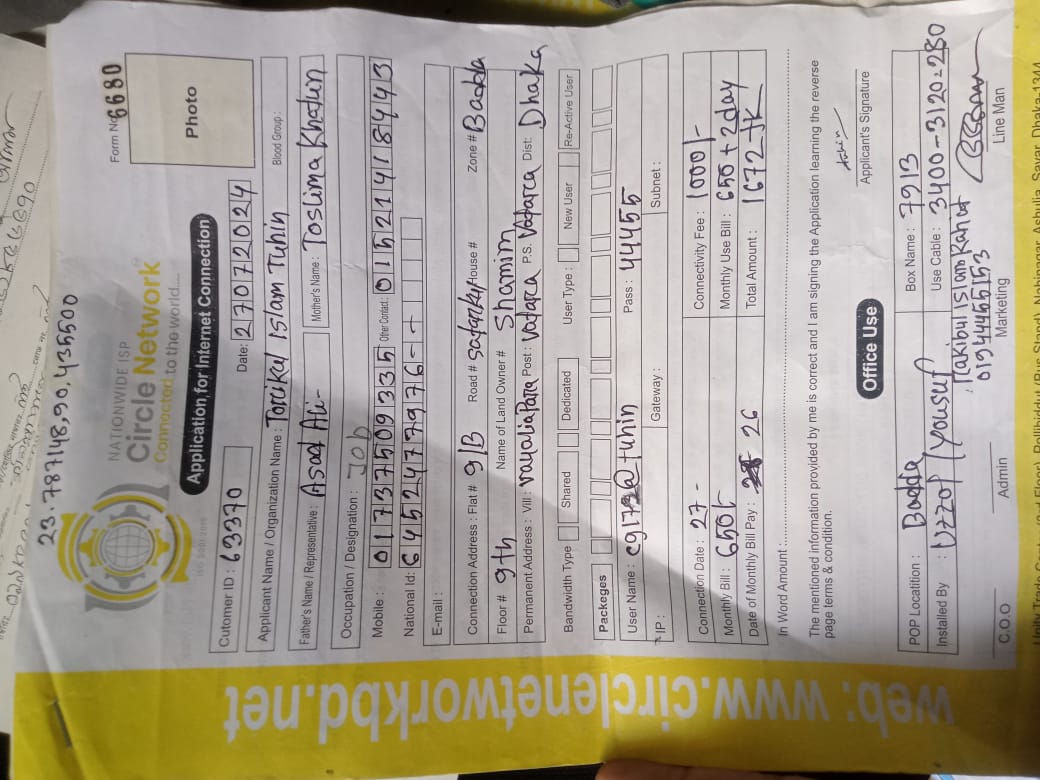 23.787148,90.435500
NATIONWIDE ISP
Circle Network
Connected to the world...
Form No 6680
Photo
Application for Internet Connection
Cutomer ID : 63370 Date: 27072024
Applicant Name / Organization Name : Torikul Islam Tuhin Blood Group :
Father's Name / Representative : Asad Ali- Mother's Name : Toslima Khatun
Occupation / Designation : Job
Mobile : 01737509335 Other Contact : 01521418443
National Id: 6452477976-
E-mail :
Connection Address : Flat # 9/B Road # Satarkul House # Zone # Badda
Floor # 9th Name of Land Owner # Shamim
Permanent Address : Vill : Vayaliapara Post : Vatara P.S. Vatara Dist: Dhaka
Bandwidth Type Shared Dedicated User Type : New User Re-Active User
Packeges
User Name : c9173@tuhin Pass : 44455
IP : Gateway : Subnet :
Connection Date : 27- Connectivity Fee : 1000/-
Monthly Bill : 650/- Monthly Use Bill : 650 + 2day
Date of Monthly Bill Pay : 26 Total Amount : 1672-TK
In Word Amount :
The mentioned information provided by me is correct and I am signing the Application learning the reverse
page terms & condition.
tuhin
Applicant's Signature
Office Use
POP Locatition : Badda Box Name : 7913
Installed By : Uzzol / yousuf Use Cable : 3400-3120=280
Rakibul Islam Rahat
01944455153
C.O.O Admin Marketing Line Man
web: www.circlenetworkbd.net